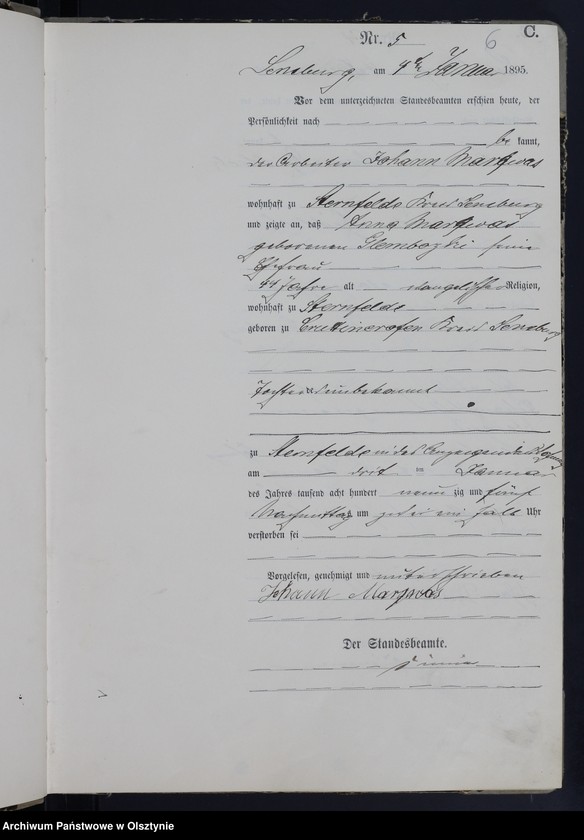 Nr. 5
6
C.
Sensburg, am 4ten Januar 1895.
Vor dem unterzeichneten Standesbeamten erschien heute, der
Persönlichkeit nach
be kannt,
der Arbeiter Johann Marzwas
wohnhaft zu Sternfelde Kreis Sensburg
und zeigte an, daß Anna Marzwas
geborenen seine
Ehefrau
44 Jahre alt evangelischer Religion,
wohnhaft zu Sternfelde
geboren zu Kreis Sensburg
Tochter unbekannt
zu Sternfelde in des
am drit ten Januar
des Jahres tausend acht hundert neun zig und fünf
Nachmittags um Uhr
verstorben sei
Vorgelesen, genehmigt und unterschrieben
Johann Marzwas
Der Standesbeamte.
Archiwum Państwowe w Olsztynie